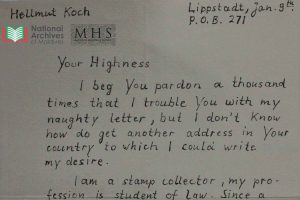 Hellmut Koch
Lippstadt, Jan. 9th
P.O.B. 271
National
Archives
of Maldives
MHS
Your Highness
I beg You pardon a thousand
times that I trouble You with my
naughty letter, but I don't know
how do get another address in Your
country to which I could write
my desire.
I am a stamp collector, my pro-
fession is student of law. Since a